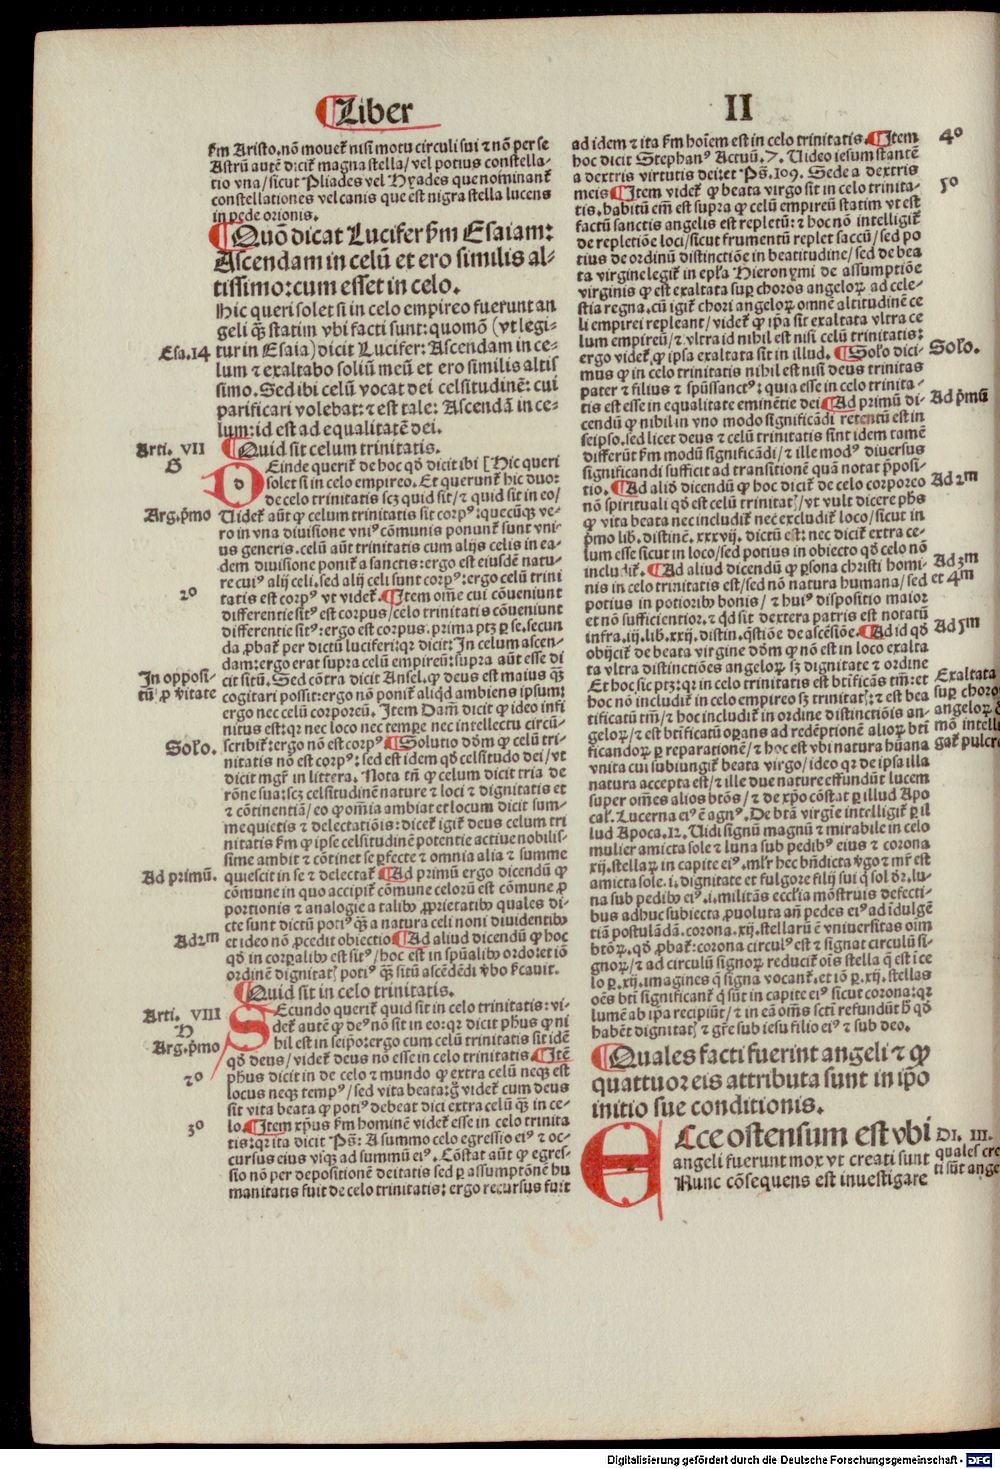 ¶Liber
II
ẜm Aristo. nō mouet̄ nisi motu circuli sui ⁊ nō per se
Astrū autē dicit̄ magna stella/ vel potius constella⸗
tio vna/ sicut Pliades vel Hyades que nominant̄
constellationes vel canis que est nigra stella lucens
in pede orionis.
¶Quō dicat Lucifer ẜm Esaiam:
Ascendam in celū et ero similis al⸗
tissimo: cum esset in celo.
Hic queri solet si in celo empireo fuerunt an
geli qꝫ̄ statim vbi facti sunt: quomō (vt legi⸗
Esa.14 tur in Esaia) dicit Lucifer: Ascendam in ce⸗
lum ⁊ exaltabo soliū meū et ero similis altis
simo. Sed ibi celū vocat dei celsitudinē: cui
parificari volebat: ⁊ est tale: Ascendā in ce⸗
lum: id est ad equalitatē dei.
Arti. VII ¶Quid sit celum trinitatis.
G DEinde querit̄ de hoc qd̄ dicit ibi [Hic queri
solet si in celo empireo. Et querunt̄ hic duo:
de celo trinitatis scꝫ quid sit/ ⁊ quid sit in eo/
Arg.p̄mo Uidet̄ aūt ꝙ celum trinitatis sit corpꝰ: quecūqꝫ ve⸗
ro in vna diuisione vniꝰ cōmunis ponunt̄ sunt vni⸗
us generis. celū aūt trinitatis cum alijs celis in ea⸗
dem diuisione ponit̄ a sanctis: ergo est eiusdē natu⸗
re cuiꝰ alij celi. sed alij celi sunt corpꝰ: ergo celū trini
2o tatis est corpꝰ vt videt̄. ¶Item om̄e cui cōueniunt
differentie sitꝰ est corpus/ celo trinitatis cōueniunt
differentie sitꝰ: ergo est corpus. prima ptꝫ ꝑ se. secun
da ꝓbat̄ per dictū luciferi: qꝛ dicit: In celum ascen⸗
dam: ergo erat supra celū empireū: supra aūt esse di
In opposi⸗ cit sitū. Sed cōtra dicit Ansel. ꝙ deus est maius qꝫ̄
tū ꝓ v̄itate cogitari possit: ergo nō ponit̄ aliqd̄ ambiens ipsum:
ergo nec celū corporeū. Item Dam̄ dicit ꝙ ideo infi
nitus est: qꝛ nec loco nec tempe nec intellectu circū⸗
Solo. scribit̄: ergo nō est corpꝰ ¶Solutio dōm ꝙ celū tri⸗
nitatis nō est corpꝰ: sed est idem qd̄ celsitudo dei/ vt
dicit mgr̄ in littera. Nota tn̄ ꝙ celum dicit tria de
rōne sua: scꝫ celsitudinē nature ⁊ loci ⁊ dignitatis et
⁊ cōtinentiā/ eo ꝙ om̄ia ambiat et locum dicit sum⸗
me quietis ⁊ delectatiōis: dicet̄ igit̄ deus celum tri
nitatis ẜm ꝙ ipse celsitudinē potentie actiue nobilis⸗
sime ambit ⁊ cōtinet se ꝑfecte ⁊ omnia alia ⁊ summe
Ad primū. quiescit in se ⁊ delectat̄ ¶Ad primū ergo dicendū ꝙ
cōmune in quo accipit̄ cōmune celorū est cōmune ꝓ
portionis ⁊ analogie a talibꝰ ꝓprietatibꝰ quales di⸗
cte sunt dictū potiꝰ qꝫ̄ a natura celi noni diuidentibꝰ
Ad 2m et ideo nō ꝓcedit obiectio ¶Ad aliud dicendū ꝙ hoc
qd̄ in corꝑalibꝰ est sitꝰ/ hoc est in spūalibꝰ ordo: et iō
ordinē dignitatꝭ potiꝰ qꝫ̄ sitū ascēdēdi v̄bo ẜcauit.
¶Quid sit in celo trinitatis.
Arti. VIII SEcundo querit̄ quid sit in celo trinitatis: vi⸗
H det̄ autē ꝙ deꝰ nō sit in eo: qꝛ dicit phūs ꝙ ni
Arg.p̄mo hil est in seipo: ergo cum celū trinitatis sit idē
qd̄ deus/ videt̄ deus nō esse in celo trinitatis. ¶Itē
2o phūs dicit in de celo ⁊ mundo ꝙ extra celū neqꝫ est
locus neqꝫ tempꝰ/ sed vita beata: g̊ videt̄ cum deus
sit vita beata ꝙ potiꝰ debeat dici extra celū qꝫ̄ in ce⸗
3o lo. ¶Item xp̄us ẜm hominē videt̄ esse in celo trinita
tis: qꝛ ita dicit Pš: A summo celo egressio eiꝰ ⁊ oc⸗
cursus eius vsqꝫ ad summū eiꝰ. Cōstat aūt ꝙ egres⸗
sio nō per depositionē deitatis sed ꝑ assumptōnē hu
manitatis fuit de celo trinitatis: ergo recursus fuit
ad idem ⁊ ita ẜm hoīem est in celo trinitatis. ¶Item 4o
hoc dicit Stephanꝰ Actuū.7. Uideo iesum stantē
a dextris virtutis dei: et Pš.109. Sede a dextris
meis ¶Item videt̄ ꝙ beata virgo sit in celo trinita⸗ 5o
tis. habitū em̄ est supra ꝙ celū empireū statim vt est
factū sanctis angelis est repletū: ⁊ hoc nō intelligit̄
de repletiōe loci/ sicut frumentū replet saccū/ sed po
tius de ordinū distinctiōe in beatitudine/ sed de bea
ta virgine legit̄ in epl̄a Hieronymi de assumptiōe
virginis ꝙ est exaltata sup choros angeloꝝ ad cele⸗
stia regna. cū igit̄ chori angeloꝝ omnē altitudinē ce
li empirei repleant/ videt̄ ꝙ ip̄a sit exaltata vltra ce
lum empireū/ ⁊ vltra id nihil est nisi celū trinitatis:
ergo videt̄ ꝙ ipsa exaltata sit in illud. ¶Solo dici⸗ Solo.
mus ꝙ in celo trinitatis nihil est nisi deus trinitas
pater ⁊ filius ⁊ spūssanctꝰ: quia esse in celo trinita⸗
tis est esse in equalitate eminētie dei ¶Ad primū di⸗ Ad p̄mū
cendū ꝙ nihil in vno modo significādi retentū est in
seipso. sed licet deus ⁊ celū trinitatis sint idem tamē
differūt ẜm modū significādi/ ⁊ ille modꝰ diuersus
significandi sufficit ad transitionē quā notat p̄posi⸗
tio. ¶Ad aliō dicendū ꝙ hoc dicit̄ de celo corporeo Ad 2m
nō spirituali qd̄ est celū trinitatꝭ/ vt vult dicere phs̄
ꝙ vita beata nec includit̄ nec excludit̄ loco/ sicut in
p̄mo lib. distinē. xxxvij. dictū est: nec dicit̄ extra ce⸗
lum esse sicut in loco/ sed potius in obiecto qd̄ celo nō Ad 3m
includit̄. ¶Ad aliud dicendū ꝙ ꝑsona christi homi⸗ et 4m
nis in celo trinitatis est/ sed nō natura humana/ sed
potius in potioribꝰ bonis/ ⁊ huiꝰ dispositio maior
et sufficientior. ⁊ qd̄ sit dextera patris est notatū
infra. iij. lib. xxij. distin. qs̄tiōe de ascēsiōe. ¶Ad id qd̄ Ad 5m
obijcit̄ de beata virgine dōm ꝙ nō est in loco exalta
ta vltra distinctiōes angeloꝝ sꝫ dignitate ⁊ ordine
Et hoc sic ptꝫ: qꝛ in celo trinitatis est bt̄ificās tm̄: et Exaltata
hoc nō includit̄ in celo empireo sꝫ trinitatꝭ: ⁊ est bea sup choro
tificatū tm̄/ ⁊ hoc includit̄ in ordine distinctiōis an⸗ angeloꝝ
geloꝝ/ ⁊ est bt̄ificatū oꝑans ad redēptionē alioꝝ bt̄i mō intell
ficandoꝝ ꝑ reparationē/ ⁊ hoc est vbi natura hūana gat̄ pulcre
vnita cui subiungit̄ beata virgo/ ideo qꝛ de ipsa illa
natura accepta est/ ⁊ ille due nature effundūt lucem
super om̄es alios btōs/ ⁊ de xp̄o cōstat ꝑ illud Apo
cal̄. Lucerna eiꝰ ē agnꝰ. De btā virgīe intelligit̄ ꝑ il
lud Apoca.12. Uidi signū magnū ⁊ mirabile in celo
mulier amicta sole ⁊ luna sub pedibꝰ eius ⁊ corona
xij. stellaꝝ in capite eiꝰ. ml̄r hec bn̄dicta v̄go ⁊ mr̄ est
amicta sole. i. dignitate et fulgore filij sui q̇ sol dr̄. lu⸗
na sub pedibꝰ eiꝰ. i. militās eccl̄ia mōstruis defecti⸗
bus adhuc subiecta ꝓuoluta an̄ pedes eiꝰ ad īdulgē
tiā postulādā. corona. xij. stellarū ē vniuersitas oīm
btōꝝ. qd̄ ꝓbat̄: corona circulꝰ est ⁊ signat circulū si⸗
gnoꝝ/ ⁊ ad circulū signoꝝ reducit̄ oīs stella q̄ est ī ce
lo ꝑ. xij. imagines q̄ signa vocant̄. et iō ꝑ. xij. stellas
oēs bt̄i significant̄ q̇ sūt in capite eiꝰ sicut corona: qꝛ
lumē ab ip̄a recipiūt/ ⁊ in eā om̄s scti refundūt h̄ qd̄
habēt dignitatꝭ ⁊ gr̄e sub iesu filio eiꝰ ⁊ sub deo.
¶Quales facti fuerint angeli ⁊ ꝙ
quattuor eis attributa sunt in ip̄o
initio sue conditionis.
ECce ostensum est vbi DI. III.
angeli fuerunt mox vt creati sunt quales cre
Nunc cōsequens est inuestigare ti sūt ange
Digitalisierung gefördert durch die Deutsche Forschungsgemeinschaft - DFG